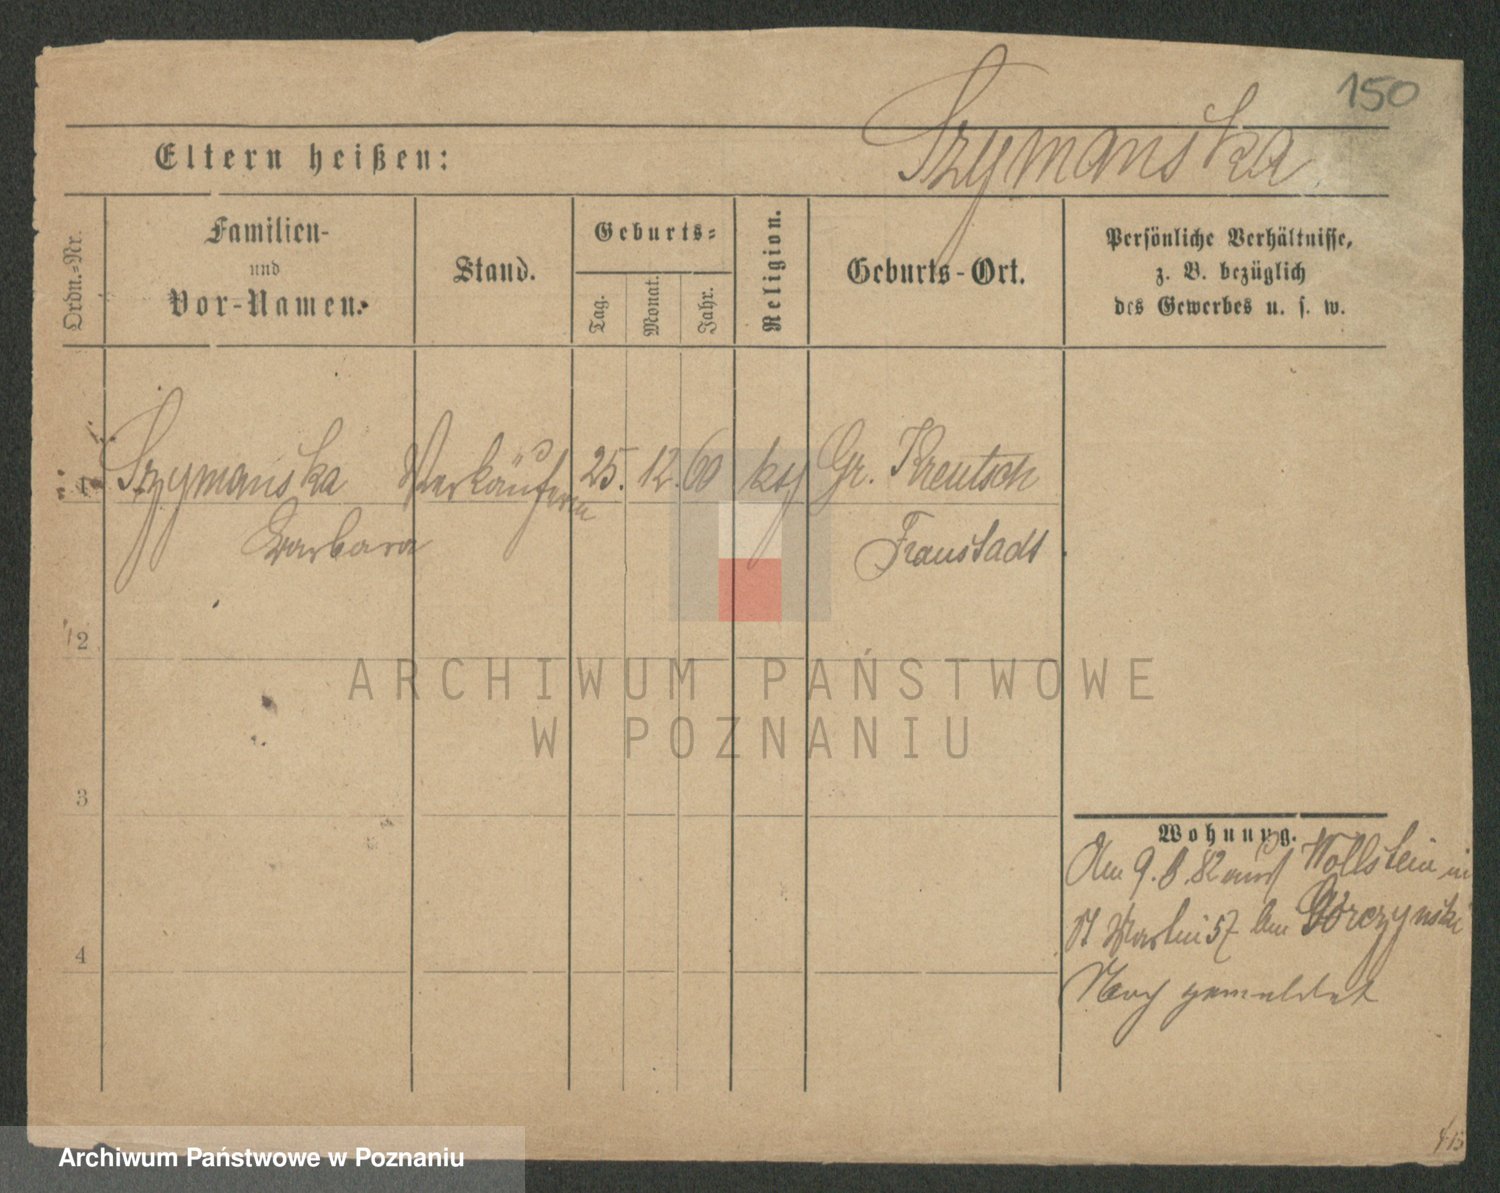 150
Szymanska
Eltern heißen:
Ordn.-Nr.
Familien-
und
Vor-Namen.
Stand.
Geburts-
Tag.
Monat.
Jahr.
Religion.
Geburts-Ort.
Persönliche Verhältnisse,
z. B. bezüglich
des Gewerbes u. s. w.
1 Szymanska Verkäuferin 25. 12. 60 kth Gr. Kreutsch
Barbara Fraustadt
2
3
4
Wohnung.
Am 9. 8. 82 aus Wollstein in
St Martin 57 bm Górczynski
Nach gemeldet
ARCHIWUM PAŃSTWOWE
W POZNANIU
Archiwum Państwowe w Poznaniu